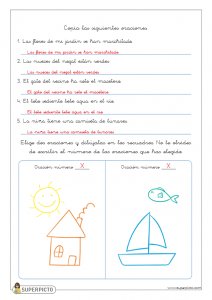 Copia las siguientes oraciones
1. Las flores de mi jardín se han marchitado
Las flores de mi jardín se han marchitado
2. Las nueces del nogal están verdes
Las nueces del nogal están verdes
3. El gato del vecino ha roto el macetero
El gato del vecino ha roto el macetero
4. El bebé sediento bebe agua en el río
El bebé sediento bebe agua en el río
5. La niña tiene una camiseta de lunares
La niña tiene una camiseta de lunares
Elige dos oraciones y dibújalas en los recuadros. No te olvides
de escribir el número de las oraciones que has elegido
Oración número X
Oración número X
SUPERPICTO